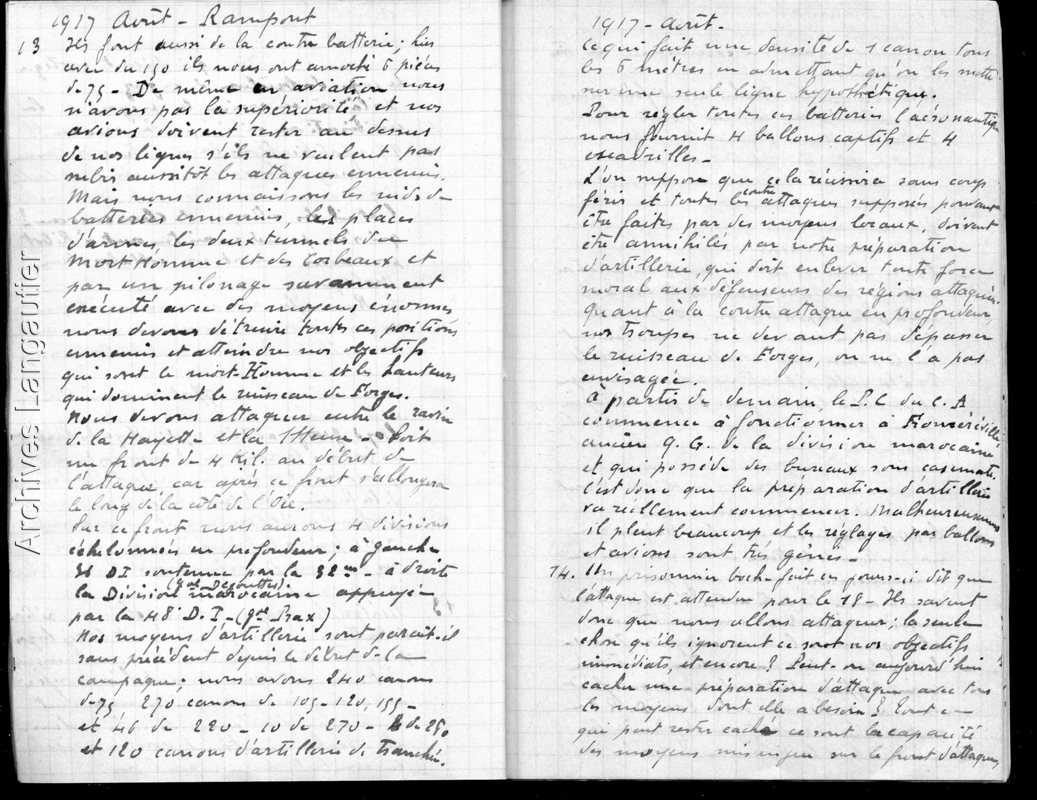 1917 Août - Rampont
13 Ils font aussi de la contre batterie; hier
avec du 150 ils nous ont amoché 6 pièces
de 75 - De même en aviation nous
n'avons pas la supériorité et nos
avions doivent rester au dessus
de nos lignes s'ils ne veulent pas
subir aussitôt les attaques ennemies.
Mais nous connaissons les nids de
batteries ennemies, les places
d'armes, les deux tunnels du
Mort Homme et des Corbeaux et
par un pilonage savamment
exécuté avec des moyens énormes
nous devons détruire toutes ces positions
ennemies et atteindre nos objectifs
qui sont le Mort-Homme et les hauteurs
qui dominent le ruisseau de Forges.
Nous devons attaquer entre le ravin
de la Hayette et la Meuse - Soit
un front de 4 Kil. au début de
l'attaque car après ce front s'allongera
le long de la côte de l'Oie.
Sur ce front nous aurons 4 divisions
échelonnées en profondeur; à gauche
31 DI soutenue par la 32me - à droite
la Division (gal Degouttes) marocaine appuyée
par la 48e D.I - (gal Prax)
Nos moyens d'artillerie sont parait-il
sans précédent depuis le début de la
campagne; nous avons 240 canons
de 75 270 canons de 105 - 120, 155 -
et 46 de 220 - 10 de 270 - de 280
et 120 canons d'artillerie de tranchée.
1917 - Août -
Ce qui fait une densité de 1 canon tous
les 6 mètres en admettant qu'on les mette
sur une seule ligne hypothétique.
Pour régler toutes ces batteries l'aéronautique
nous fournit 4 ballons captifs et 4
escadrilles -
L'on suppose que cela réussira sans coups
férir et toutes les contre attaques supposées pouvant
être faites par des moyens locaux, doivent
être annihilés par notre préparation
d'artillerie, qui doit enlever toute force
moral aux défenseurs des régions attaquées
quant à la contre attaque en profondeur,
nos troupes ne devant pas dépasser
le ruisseau de Forges, on ne l'a pas
envisagée.
à partir de demain, le P.C du C.A
commence à fonctionner à Fromeréville
ancien Q.G. de la division marocaine
et qui possède des bureaux sous casemate.
C'est donc que la préparation d'artillerie
va réellement commencer. Malheureusement
il pleut beaucoup et les réglages par ballons
et avions sont très gênés -
14. Un prisonnier boche fait ces jours-ci dit que
l'attaque est attendue pour le 18 - Ils savent
donc que nous allons attaquer; la seule
chose qu'ils ignorent ce sont nos objectifs
immédiats, et encore? Peut-on aujourd'hui
cacher une préparation d'attaque avec tous
les moyens dont elle a besoin? Tout ce
qui peut rester caché ce sont la capacité
des moyens mis en jeu sur le front d'attaque,
Archives Langautier